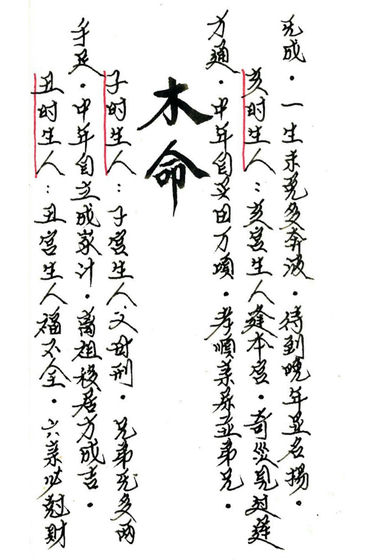 成。一生未免多奔波。待到晚年显名扬。
亥时生人：亥宫生人逢本宫。奇災见过運
方通。中年自买田万顷。孝順亲弟兄。
木命
子时生人：子宫生人父母刑。兄弟多两
手足。中年自立成家计。离祖移居方成吉。
丑时生人：丑宫生人福不全。六亲財